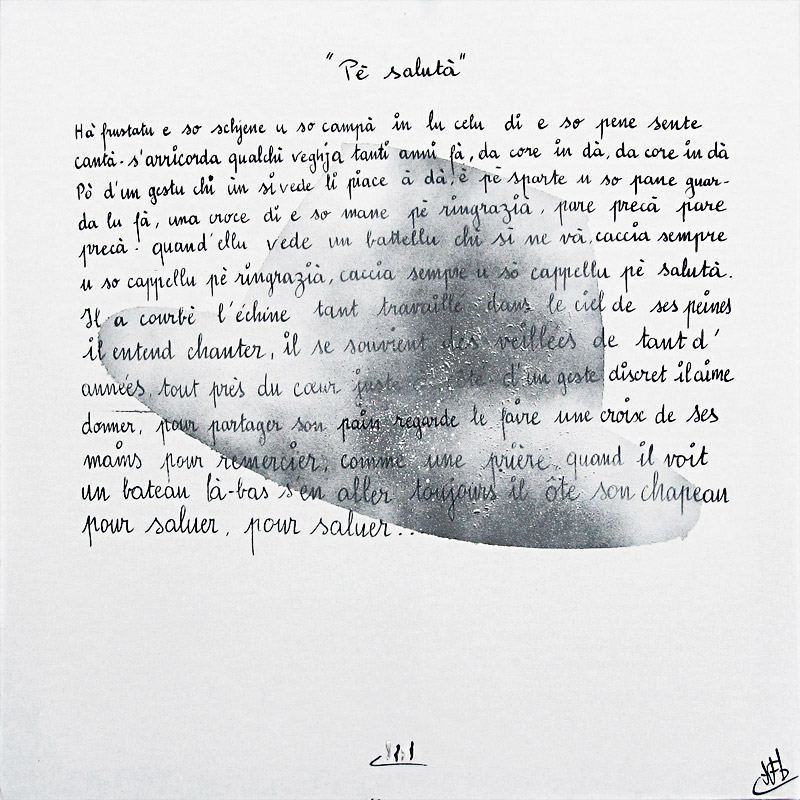 "Pè salutà"
Hà frustatu e so schjene u so campà in lu celu di e so pene sente
cantà. s'arricorda qualchì veghja tanti anni fà, da core in dà, da core in dà
Pò d'un gestu chì ùn si vede li piace à dà, è pè sparte u so pane guar-
da lu fà, una croce di e so mane pè ringrazià, pare precà pare
precà. quand'ellu vede un battellu chì si ne và, caccia sempre
u so cappellu pè ringrazià, caccia sempre u so cappellu pè salutà.
Il a courbé l'échine tant travaillé dans le ciel de ses peines
il entend chanter, il se souvient des veillées de tant d'
années, tout près du cœur juste à côté d'un geste discret il aime
donner, pour partager son pain regarde le faire une croix de ses
mains pour remercier, comme une prière, quand il voit
un bateau là-bas s'en aller toujours il ôte son chapeau
pour saluer, pour saluer...